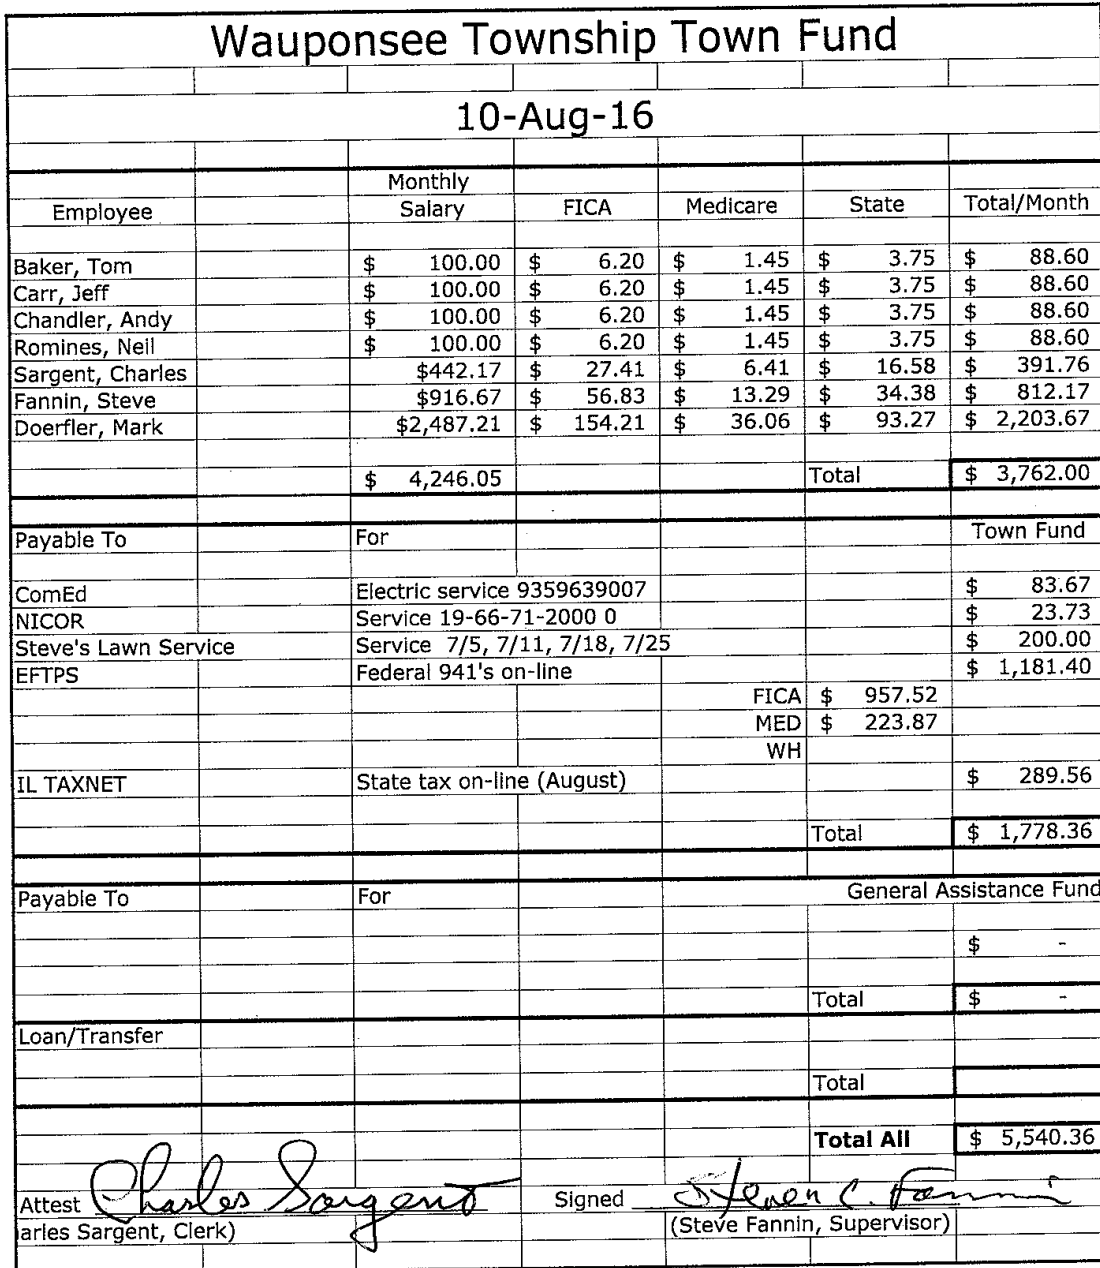 Wauponsee Township Town Fund
10-Aug-16
Monthly
Employee Salary FICA Medicare State Total/Month
Baker, Tom $ 100.00 $ 6.20 $ 1.45 $ 3.75 $ 88.60
Carr, Jeff $ 100.00 $ 6.20 $ 1.45 $ 3.75 $ 88.60
Chandler, Andy $ 100.00 $ 6.20 $ 1.45 $ 3.75 $ 88.60
Romines, Neil $ 100.00 $ 6.20 $ 1.45 $ 3.75 $ 88.60
Sargent, Charles $442.17 $ 27.41 $ 6.41 $ 16.58 $ 391.76
Fannin, Steve $916.67 $ 56.83 $ 13.29 $ 34.38 $ 812.17
Doerfler, Mark $2,487.21 $ 154.21 $ 36.06 $ 93.27 $ 2,203.67
$ 4,246.05 Total $ 3,762.00
Payable To For Town Fund
ComEd Electric service 9359639007 $ 83.67
NICOR Service 19-66-71-2000 0 $ 23.73
Steve's Lawn Service Service 7/5, 7/11, 7/18, 7/25 $ 200.00
EFTPS Federal 941's on-line $ 1,181.40
FICA $ 957.52
MED $ 223.87
WH
IL TAXNET State tax on-line (August) $ 289.56
Total $ 1,778.36
Payable To For General Assistance Fund
$ -
Total $ -
Loan/Transfer
Total
Total All $ 5,540.36
Attest Charles Sargent Signed Steven C. Fannin
arles Sargent, Clerk) (Steve Fannin, Supervisor)